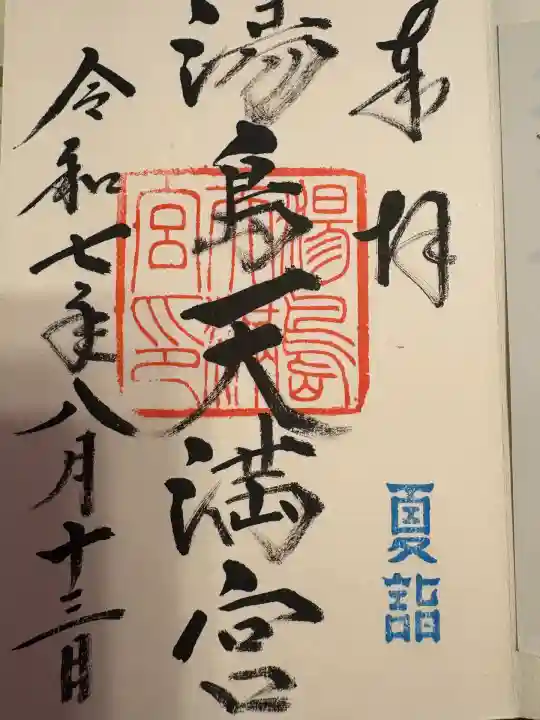 奉拝
夏詣
湯島天満宮
湯島天満宮印
令和七年八月十三日